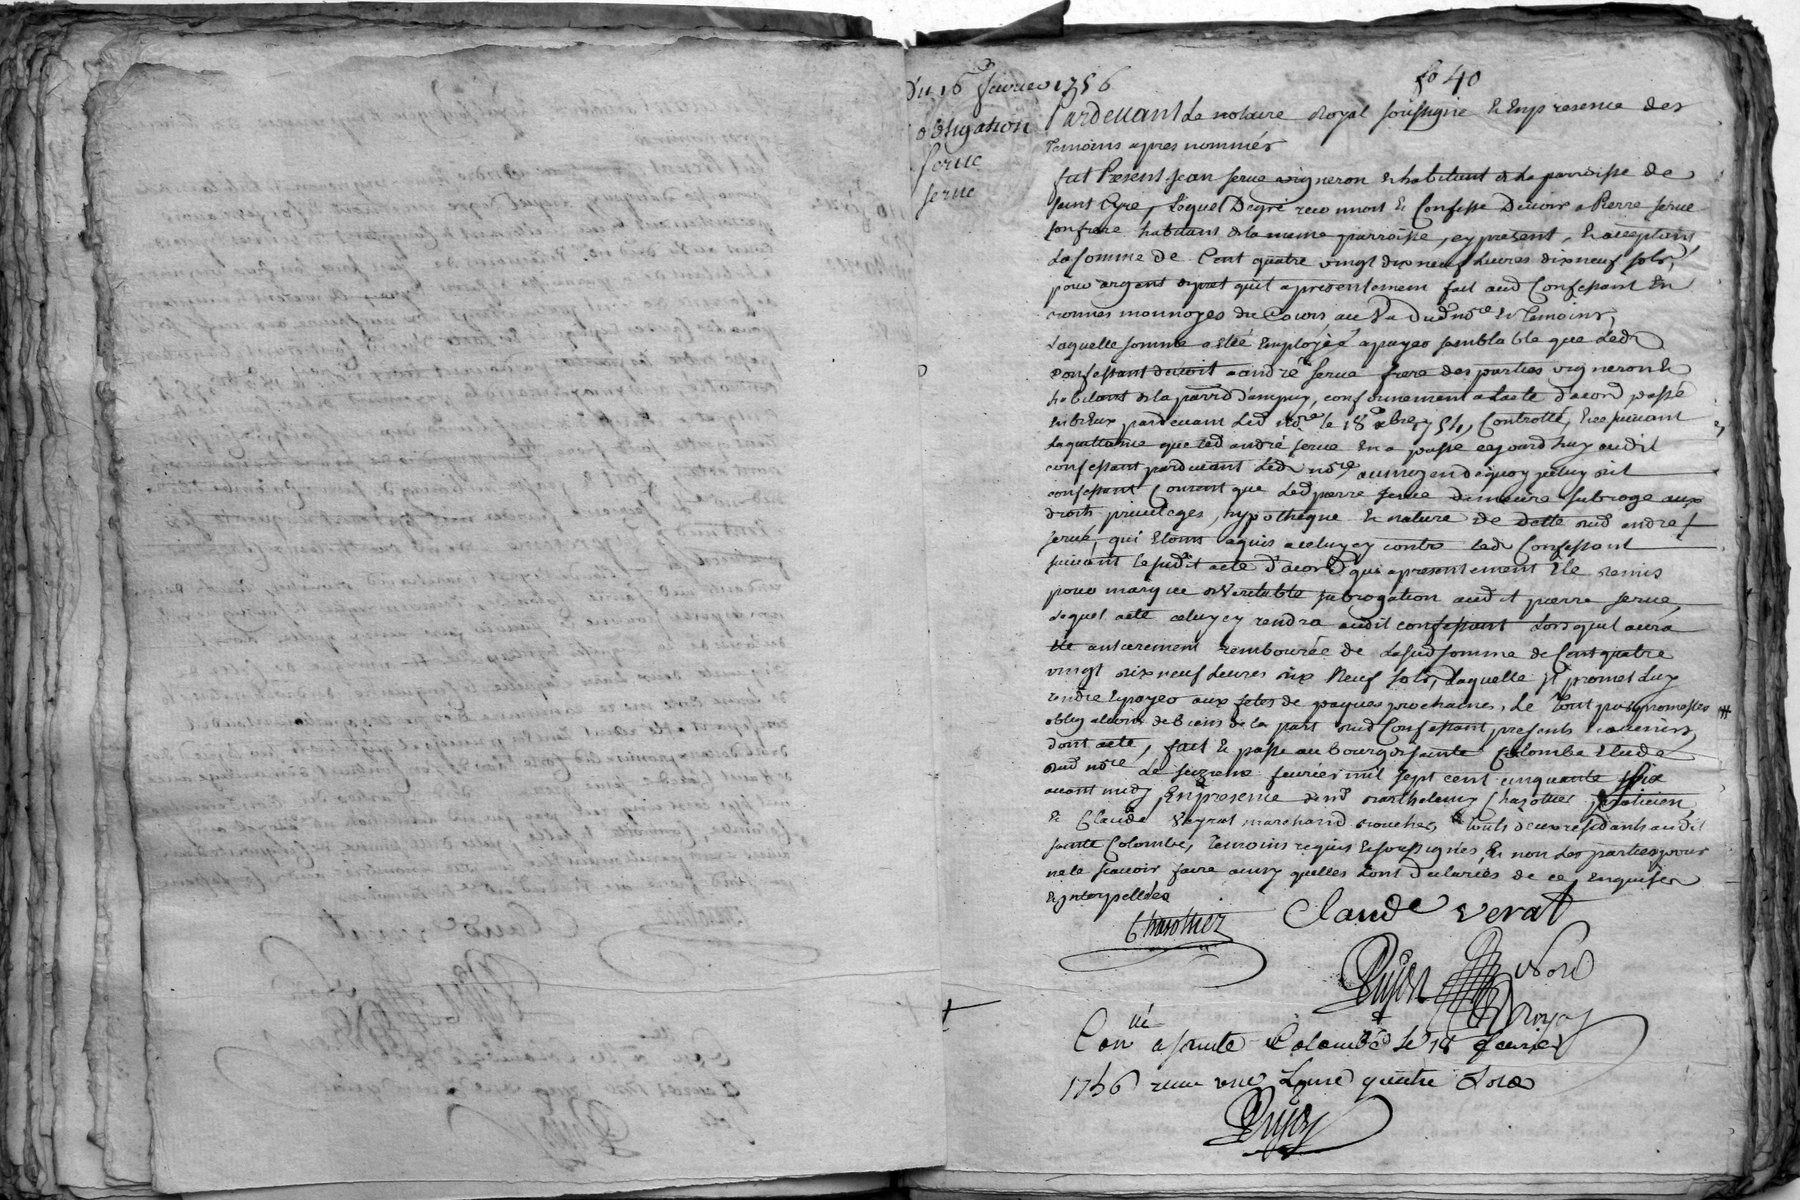 Du 16e fevrier 1756
fo 40
obligation
serue
serue
Pardeuant Le notaire Royal soussigné & En presence des
temoins apres nommés
fut Present Jean serue vigneron & habitant de La parroisse de
saint Cyre, Lequel Degré reconnoit & Confesse Deuoir a Pierre serue
son frere habitant de la meme parroisse, cy present, & acceptant
La somme de Cent quatre vingt dix neuf Liures dix neuf sols,
pour argent de pret qu'il a presentement fait aud Confessant En
bonnes monnoyes du Cours au Vu Dud nore & temoins,
Laquelle somme a Eté Employéé a payer semblable que Ledt
Confessant deuoit a andré serue frere des parties vigneron &
habitant de la parrd d'ampuy, conformement a L'acte d'acord passé
Entr Eux pardeuant Led Nore le 18e xbre 1754, Controllé, & en suiuant
La quittance que led andré serue En a passé cejourd'huy audit
confessant pardeuant Ledt nore, au moyen dequoy yceluy dit
confessant Consent que Led pierre serue demeure subrogé aux
droits priuileges, hypotheque & nature de dette dud andre
serue, qui Etoint aquis a celuycy contre led Confessant
suiuant le susdit acte d'acord qui a presentement Eté remis
pour marque de Veritable subrogation audit pierre serue,
Lequel acte celuycy rendra audit confessant Lorsquil aura
Eté entierement rembourcé de Lasusd somme de Cent quatre
vingt dix neuf Liures dix Neuf sols, Laquelle il promet Luy
rendre & payer aux fetes de paques prochaines, Le tout par promesses
obligations de biens de la part dud Confessant presents & auenirs,
dont acte, fait & passé au bourg de sainte Colombe Etude
dud nore Le seizieme feurier mil sept cent cinquante Six
auant midy En presence de Sr Barthelemy Chasottier praticien,
& Claude Veyrat marchand boucher, touts deux residants audit
sainte Colombe, temoins requis & soussignés, & non Les parties pour
ne le scauoir faire ainsy quelles L'ont declarées de ce Enquises
& ynterpellées
Chasottier
Claude verat
Dujon
Nore
Royal
Conllé a sainte Colombe le 18 feurier
1756 receu une Liure quatre Sols
Dujon